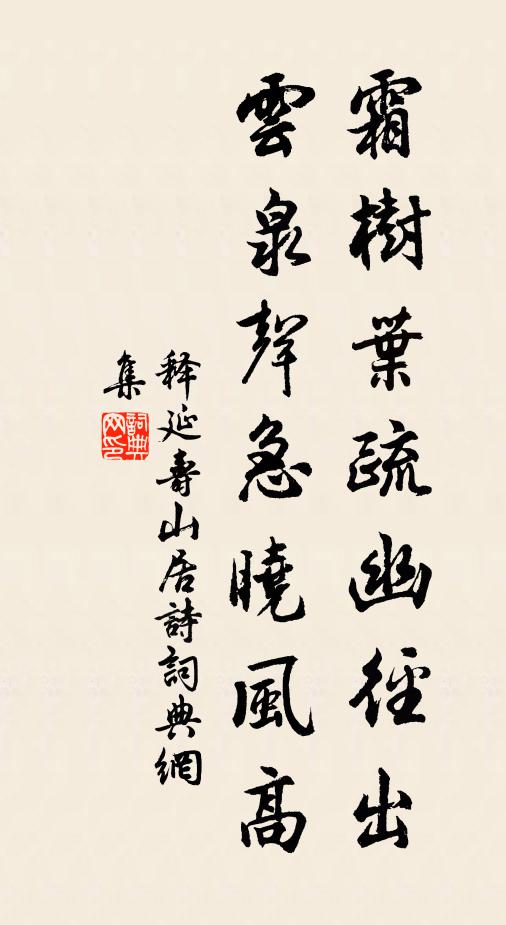 霜樹葉疏幽徑出
雲泉聲急曉風高
釋延壽山居詩詞典網
集
詞典
网印